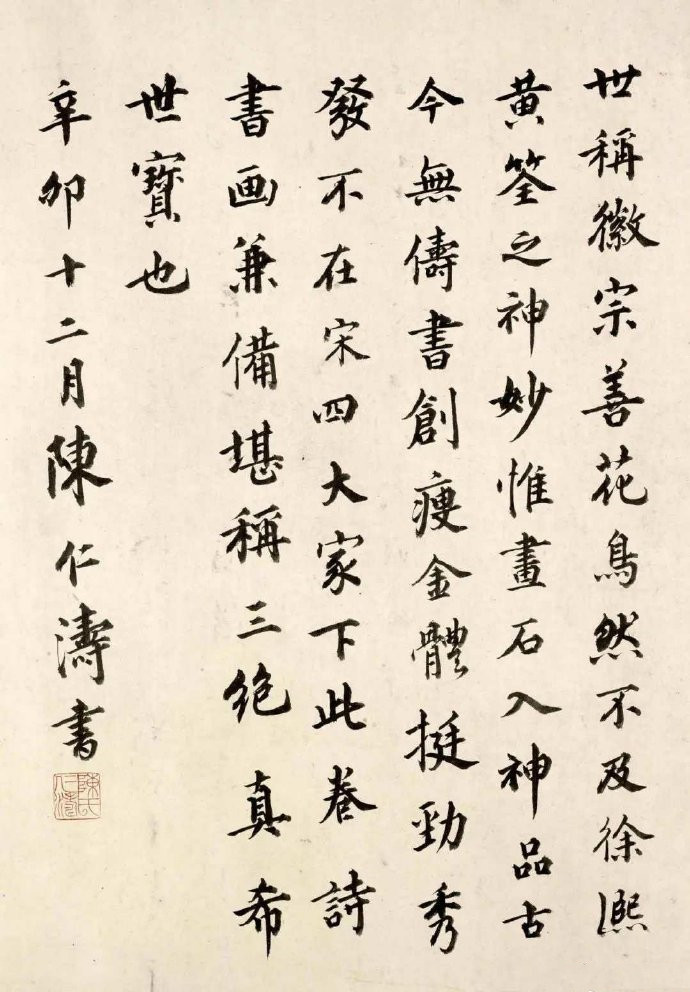 世稱徽宗善花鳥然不及徐熙
黄筌之神妙惟畫石入神品古
今無儔書創瘦金體挺勁秀
發不在宋四大家下此卷詩
書画兼備堪稱三絶真希
世寳也
辛卯十二月陳仁濤書
陳氏
仁濤